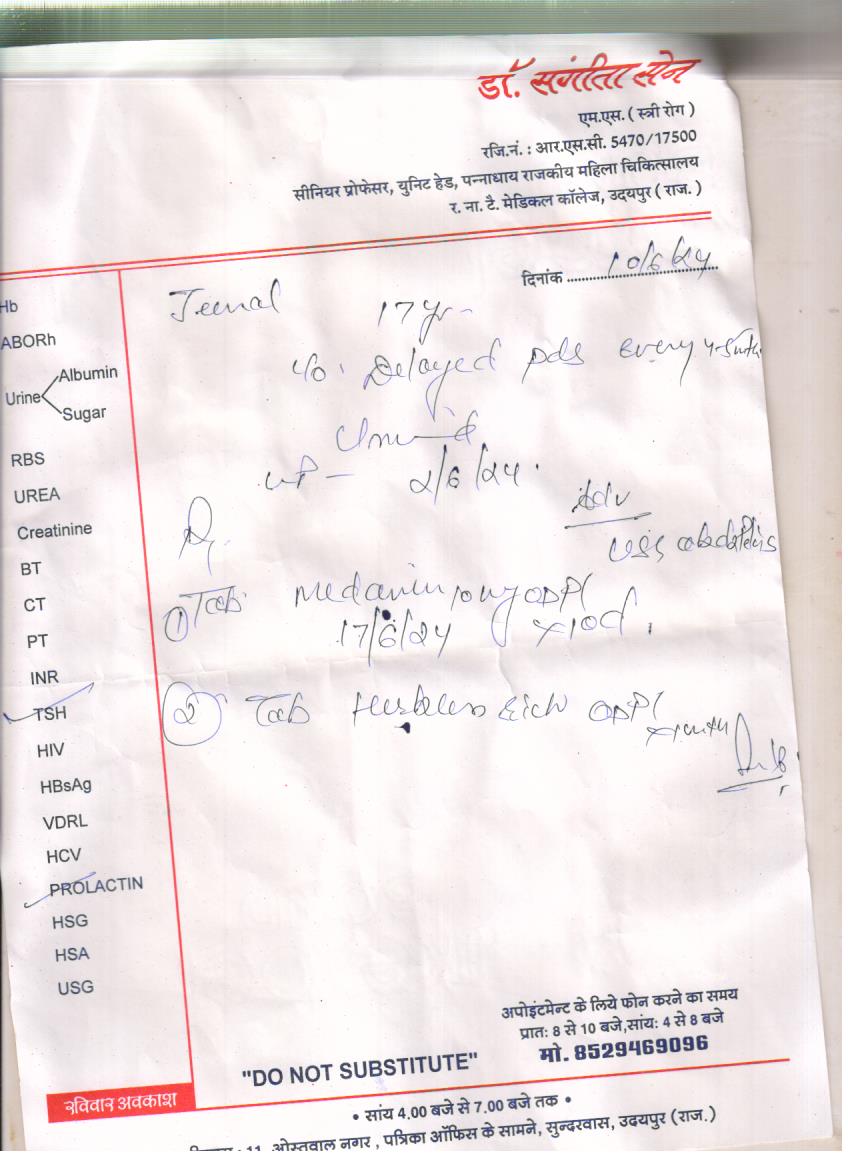 डॉ. संगीता सेन
एम.एस. ( स्त्री रोग )
रजि.नं. : आर.एस.सी. 5470/17500
सीनियर प्रोफेसर, युनिट हेड, पन्नाधाय राजकीय महिला चिकित्सालय
र. ना. टै. मेडिकल कॉलेज, उदयपुर ( राज. )
दिनांक 10/6/24
Jeenal 17 yr
c/o. Delayed pds every
2/6/24.
Adv
USG
① Tab
17/6/24 x10d
② Tab
Hb
ABORh
Urine Albumin
Sugar
RBS
UREA
Creatinine
BT
CT
PT
INR
TSH
HIV
HBsAg
VDRL
HCV
PROLACTIN
HSG
HSA
USG
अपोइंटमेन्ट के लिये फोन करने का समय
प्रातः 8 से 10 बजे,सांयः 4 से 8 बजे
मो. 8529469096
"DO NOT SUBSTITUTE"
रविवार अवकाश
• सांय 4.00 बजे से 7.00 बजे तक •
11, ओस्तवाल नगर , पत्रिका ऑफिस के सामने, सुन्दरवास, उदयपुर (राज.)